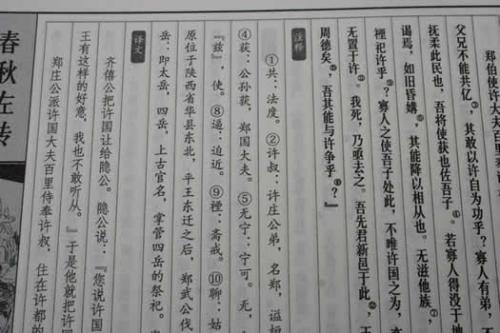 郑伯使许大夫
父兄不能共亿，其敢以许自为功乎？寡人有弟，
抚柔此民也，吾将使获也佐吾子。若寡人得没于地
谒焉，如旧昏媾，其能降以相从也。无滋他族，
禋祀许乎？寡人之使吾子处此，不唯许国之为，
无置于许。我死，乃亟去之。吾先君新邑于此，
周德矣，吾其能与许争乎？』
注释
①共：法度。②许叔：许庄公弟，名郑，谥
④获：公孙获，郑国大夫。⑤无宁：宁可。无，
『兹』，使。⑧逼：迫近。⑨禋：斋戒。⑩聊：姑
原位于陕西省华县东北，平王东迁之后，郑武公伐
岳：即太岳，四岳，上古官名，掌管四岳的祭祀。
译文
齐僖公把许国让给隐公。隐公说：『您说许国
王有这样的好意，我也不敢听从。』于是他就把许国
郑庄公派许国大夫百里侍奉许叔，住在许都的
春秋左传